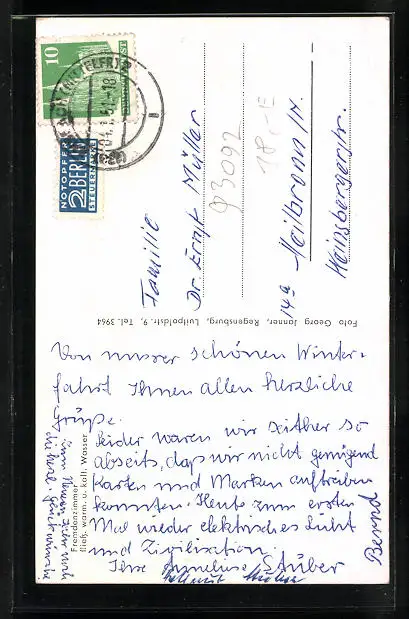 10
NOTOPFER
2 BERLIN
STEUERMARKE
Familie
Dr. Ernst Müller
14a Heilbronn/N.
Weinsbergerstr.
93092
18,-E
Foto Georg Janner, Regensburg, Luitpoldstr. 9, Tel. 3964
Von unserer schönen Winter-
fahrt Ihnen allen herzliche
Grüße.
Leider waren wir seither so
abseits, daß wir nicht genügend
Karten und Marken auftreiben
konnten. Heute zum ersten
Mal wieder elektrisches Licht
und Zivilisation.
Ihre Anneliese Stüber
Helmut
Bernd
Fremdenzimmer
fließ. warm. u. kalt. Wasser
Zum Neuen Jahr noch
die herzl. Glückwünsche